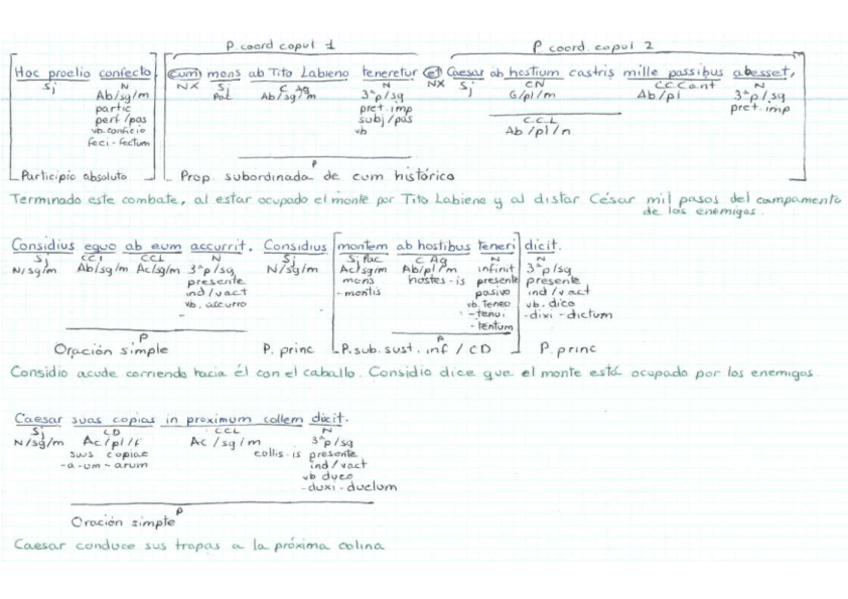 P. coord copul 1 P. coord. copul 2
Hoc proelio confecto cum mons ab Tito Labieno teneretur et Caesar ab hostium castris mille passibus abesset,
Sj N NX Sj C Ag N NX Sj CN C.C.Cant N
Ab/sg/m Pac Ab/sg/m 3ªp/sg G/pl/m Ab/pl 3ªp/sg
partic pret.imp pret.imp
perf/pas subj/pas C.C.L
vb.conficio vb Ab/pl/n
feci-fectum
P
Participio absoluto Prop. subordinada de cum histórico
Terminado este combate, al estar ocupado el monte por Tito Labiene y al distar César mil pasos del campamento
de los enemigos.
Considius equo ab eum accurrit. Considius montem ab hostibus teneri dicit.
Sj CCI CCL N Sj Sj Pac C Ag N N
N/sg/m Ab/sg/m Ac/sg/m 3ªp/sg N/sg/m Ac/sg/m Ab/pl/m infinit 3ªp/sg
presente mons hostes-is presente presente
ind/v act -montis pasivo ind/v act
vb. accurro vb.teneo vb. dico
- -tenui -dixi-dictum
-tentum
P P
Oración simple P. princ P.sub.sust.inf/CD P. princ
Considio acude corriendo hacia él con el caballo. Considio dice que el monte está ocupado por los enemigos.
Caesar suas copias in proximum collem dicit.
Sj CD CCL N
N/sg/m Ac/pl/f Ac/sg/m 3ªp/sg
suus copiae collis-is presente
-a-um-arum ind/v act
vb duco
-duxi-ductum
P
Oración simple
Caesar conduce sus tropas a la próxima colina